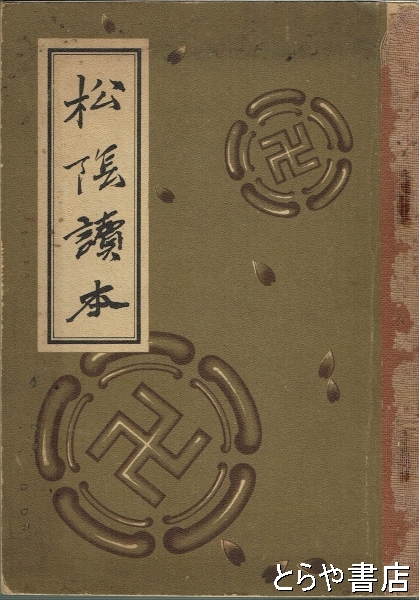 松陰讀本
とらや書店